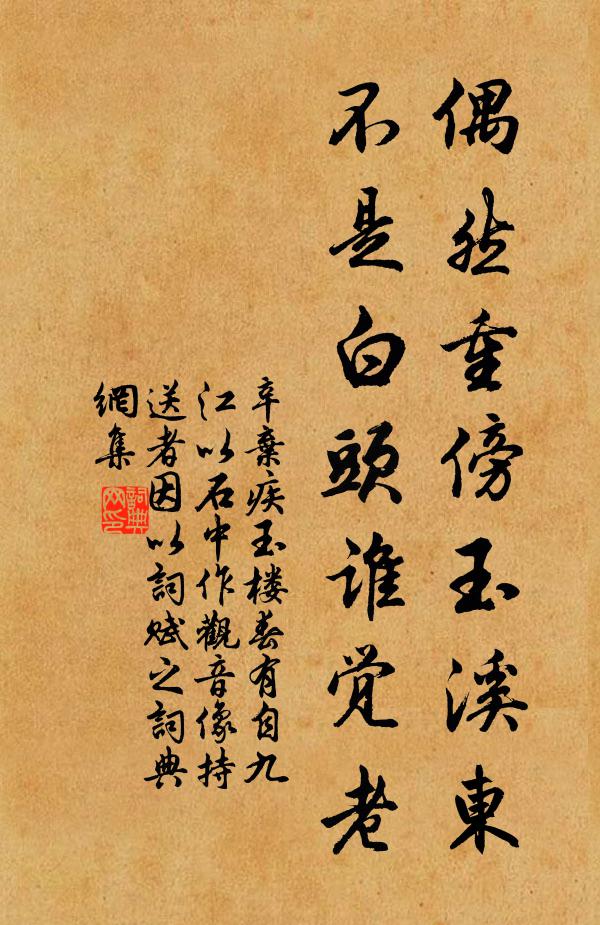 偶然重傍玉溪東
不是白頭誰覺老
辛棄疾玉楼春有自九
江以石中作觀音像持
送者因以詞賦之詞典
網集
詞典
网印